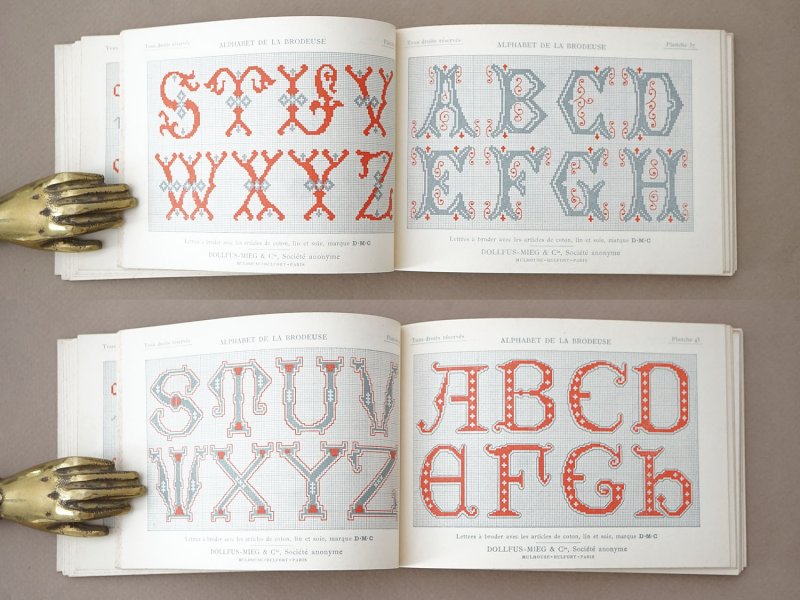 Tous droits réservés
ALPHABET DE LA BRODEUSE
S T U V
W X Y Z
Lettres à broder avec les articles de coton, lin et soie, marque D·M·C
DOLLFUS-MIEG & Cie, Société anonyme
MULHOUSE-BELFORT-PARIS
Tous droits réservés
ALPHABET DE LA BRODEUSE
Planche 37
A B C D
E F G H
Lettres à broder avec les articles de coton, lin et soie, marque D·M·C
DOLLFUS-MIEG & Cie, Société anonyme
MULHOUSE-BELFORT-PARIS
Tous droits réservés
ALPHABET DE LA BRODEUSE
S T U V
W X Y Z
Lettres à broder avec les articles de coton, lin et soie, marque D·M·C
DOLLFUS-MIEG & Cie, Société anonyme
MULHOUSE-BELFORT-PARIS
Tous droits réservés
ALPHABET DE LA BRODEUSE
A B C D
E F G h
Lettres à broder avec les articles de coton, lin et soie, marque D·M·C
DOLLFUS-MIEG & Cie, Société anonyme
MULHOUSE-BELFORT-PARIS